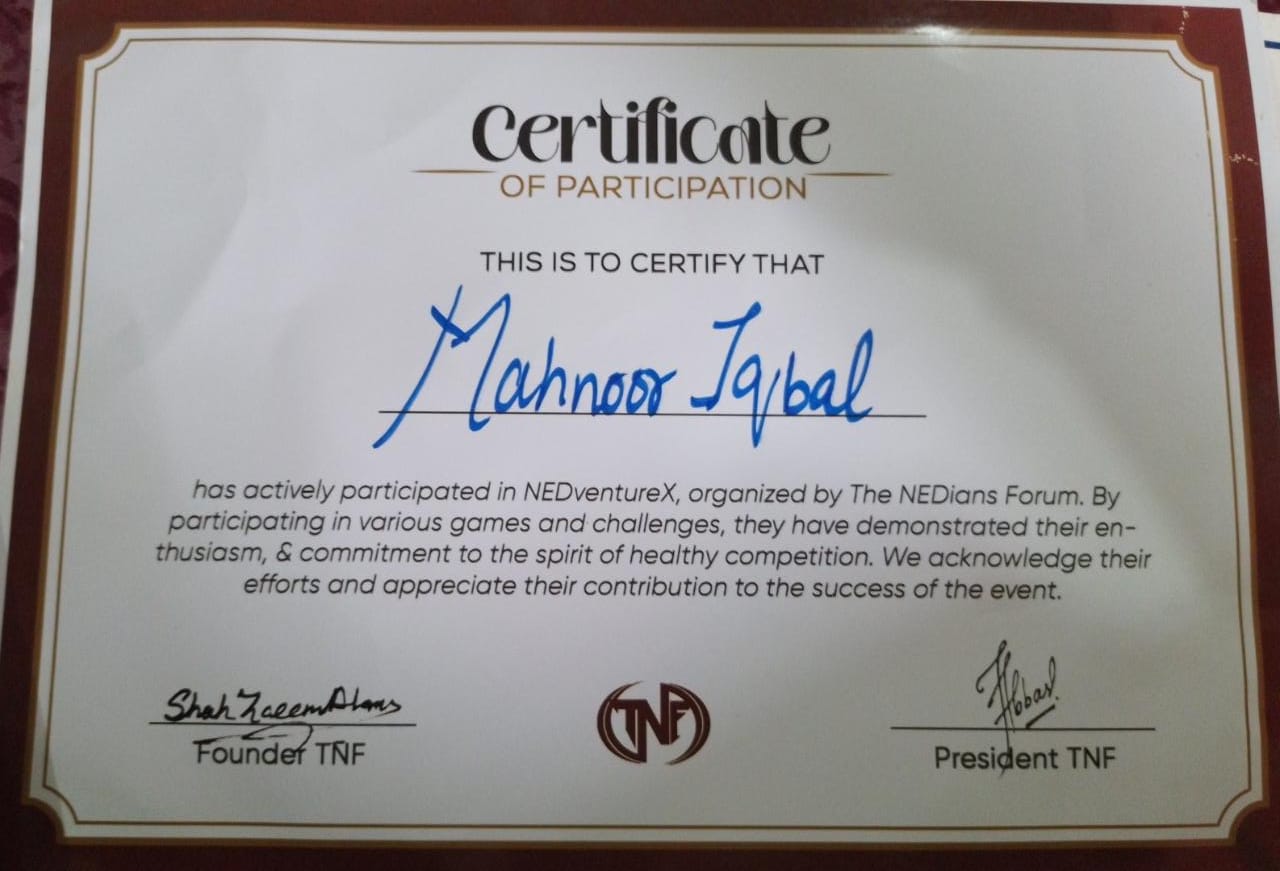 Certificate
OF PARTICIPATION
THIS IS TO CERTIFY THAT
Mahnoor Iqbal
has actively participated in NEDventureX, organized by The NEDians Forum. By
participating in various games and challenges, they have demonstrated their en-
thusiasm, & commitment to the spirit of healthy competition. We acknowledge their
efforts and appreciate their contribution to the success of the event.
Shah Zaeem
Founder TNF
TNF
Abbas
President TNF